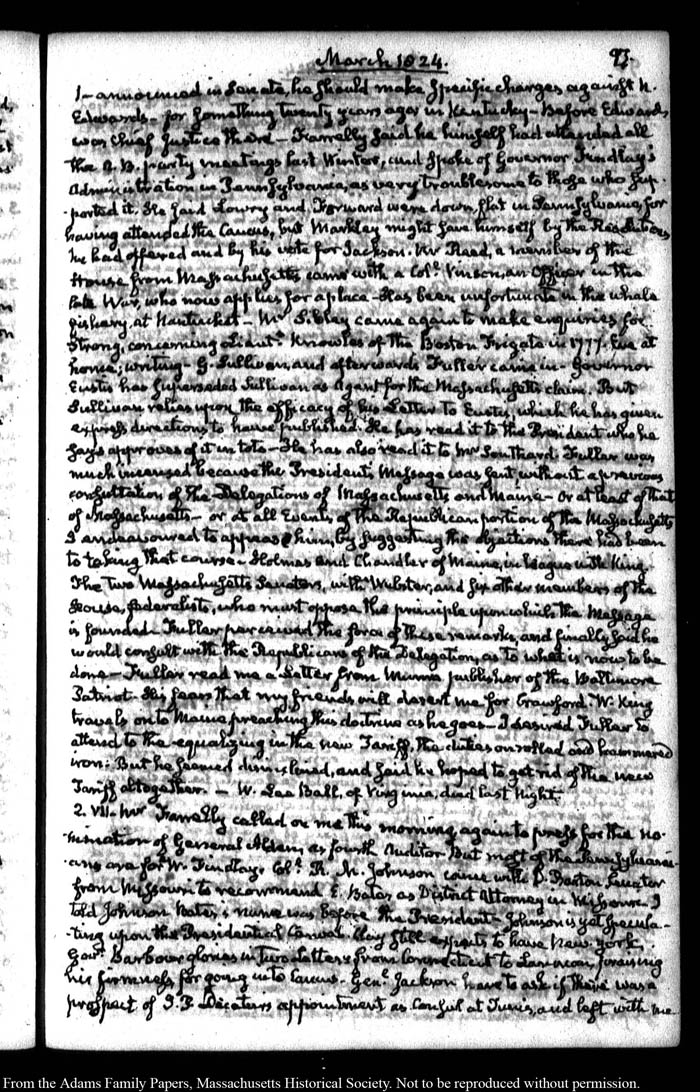 March 1824. 93.
I announced in Senate, he should make specific charges against N.
Edwards - for something twenty years ago in Kentucky - Before Edwards
was Chief Justice there - Farrelly said he himself had attended all
the A. B. party meetings last Winter, and spoke of Governor Findlay's
Administration in Pennsylvania, as very troublesome to those who sup-
-ported it. He said Lowry and Forward were down, flat in Pennsylvania, for
having attended the Caucus, but Markley might save himself by the Resolutions
he had offered and by his vote for Jackson. Mr Reed, a member of the
House from Massachusetts came with a Coll. Vinson, an Officer in the
late War, who now applies for a place - Has been unfortunate in the whale
fishery, at Nantucket - Mr Sibley came again to make enquiries for
Strong, concerning Lieutt. Knowles of the Boston Frigate in 1777. Eve at
home; writing - G. Sullivan, and afterwards Fuller came in - Governor
Eustis has superseded Sullivan as Agent for the Massachusetts claim. But
Sullivan relies upon the efficacy of his Letter to Eustis, which he has given
express directions to have published. He has read it to the President who he
says approves of it in toto - He has also read it to Mr Southard. Fuller was
much incensed because the President's Message was sent, without a previous
consultation of the Delegations of Massachusetts and Maine - or at least of that
of Massachusetts - or at all Events of the Republican portion of the Massachusetts
I endeavoured to appease him, by suggesting the objections there had been
to taking that course - Holmes and Chandler of Maine, in league with King.
The two Massachusetts Senators, with Webster, and six other members of the
House, federalists, who must oppose the principle upon which the Message
is founded. Fuller perceived the force of these remarks, and finally said he
would consult with the Republicans of the Delegation, as to what is now to be
done - Fuller read me a Letter from Munro publisher of the Baltimore
Patriot. His fears that my friends will desert me for Crawford. W. King
travels on to Maine preaching this doctrine as he goes - I desired Fuller to
attend to the equalizing in the new Tariff, the duties on rolled and hammered
iron: But he seemed disinclined, and said he hoped to get rid of the new
Tariff altogether. - W. Lee Ball, of Virginia, died last Night.
2. VII. Mr Farrelly called on me this morning again to press for the no-
-mination of General Alden, as fourth Auditor But most of the Pennsylvani-
-ans are for W. Findlay. Coll. R. M. Johnson came with D. Barton Senator
from Missouri to recommend E. Bates, as District Attorney in Missouri. I
told Johnson Bates's name was before the President - Johnson is yet specula-
-ting upon the Presidential Canvas. Clay still expects to have New-York.
Govr. Barbour glories in Two Letters from Connecticut to Lanman, praising
his firmness for going into Caucus. Genl. Jackson here to ask if there was a
prospect of J. P. Decatur's appointment as Consul at Tunis, and left with me
From the Adams Family Papers, Massachusetts Historical Society. Not to be reproduced without permission.